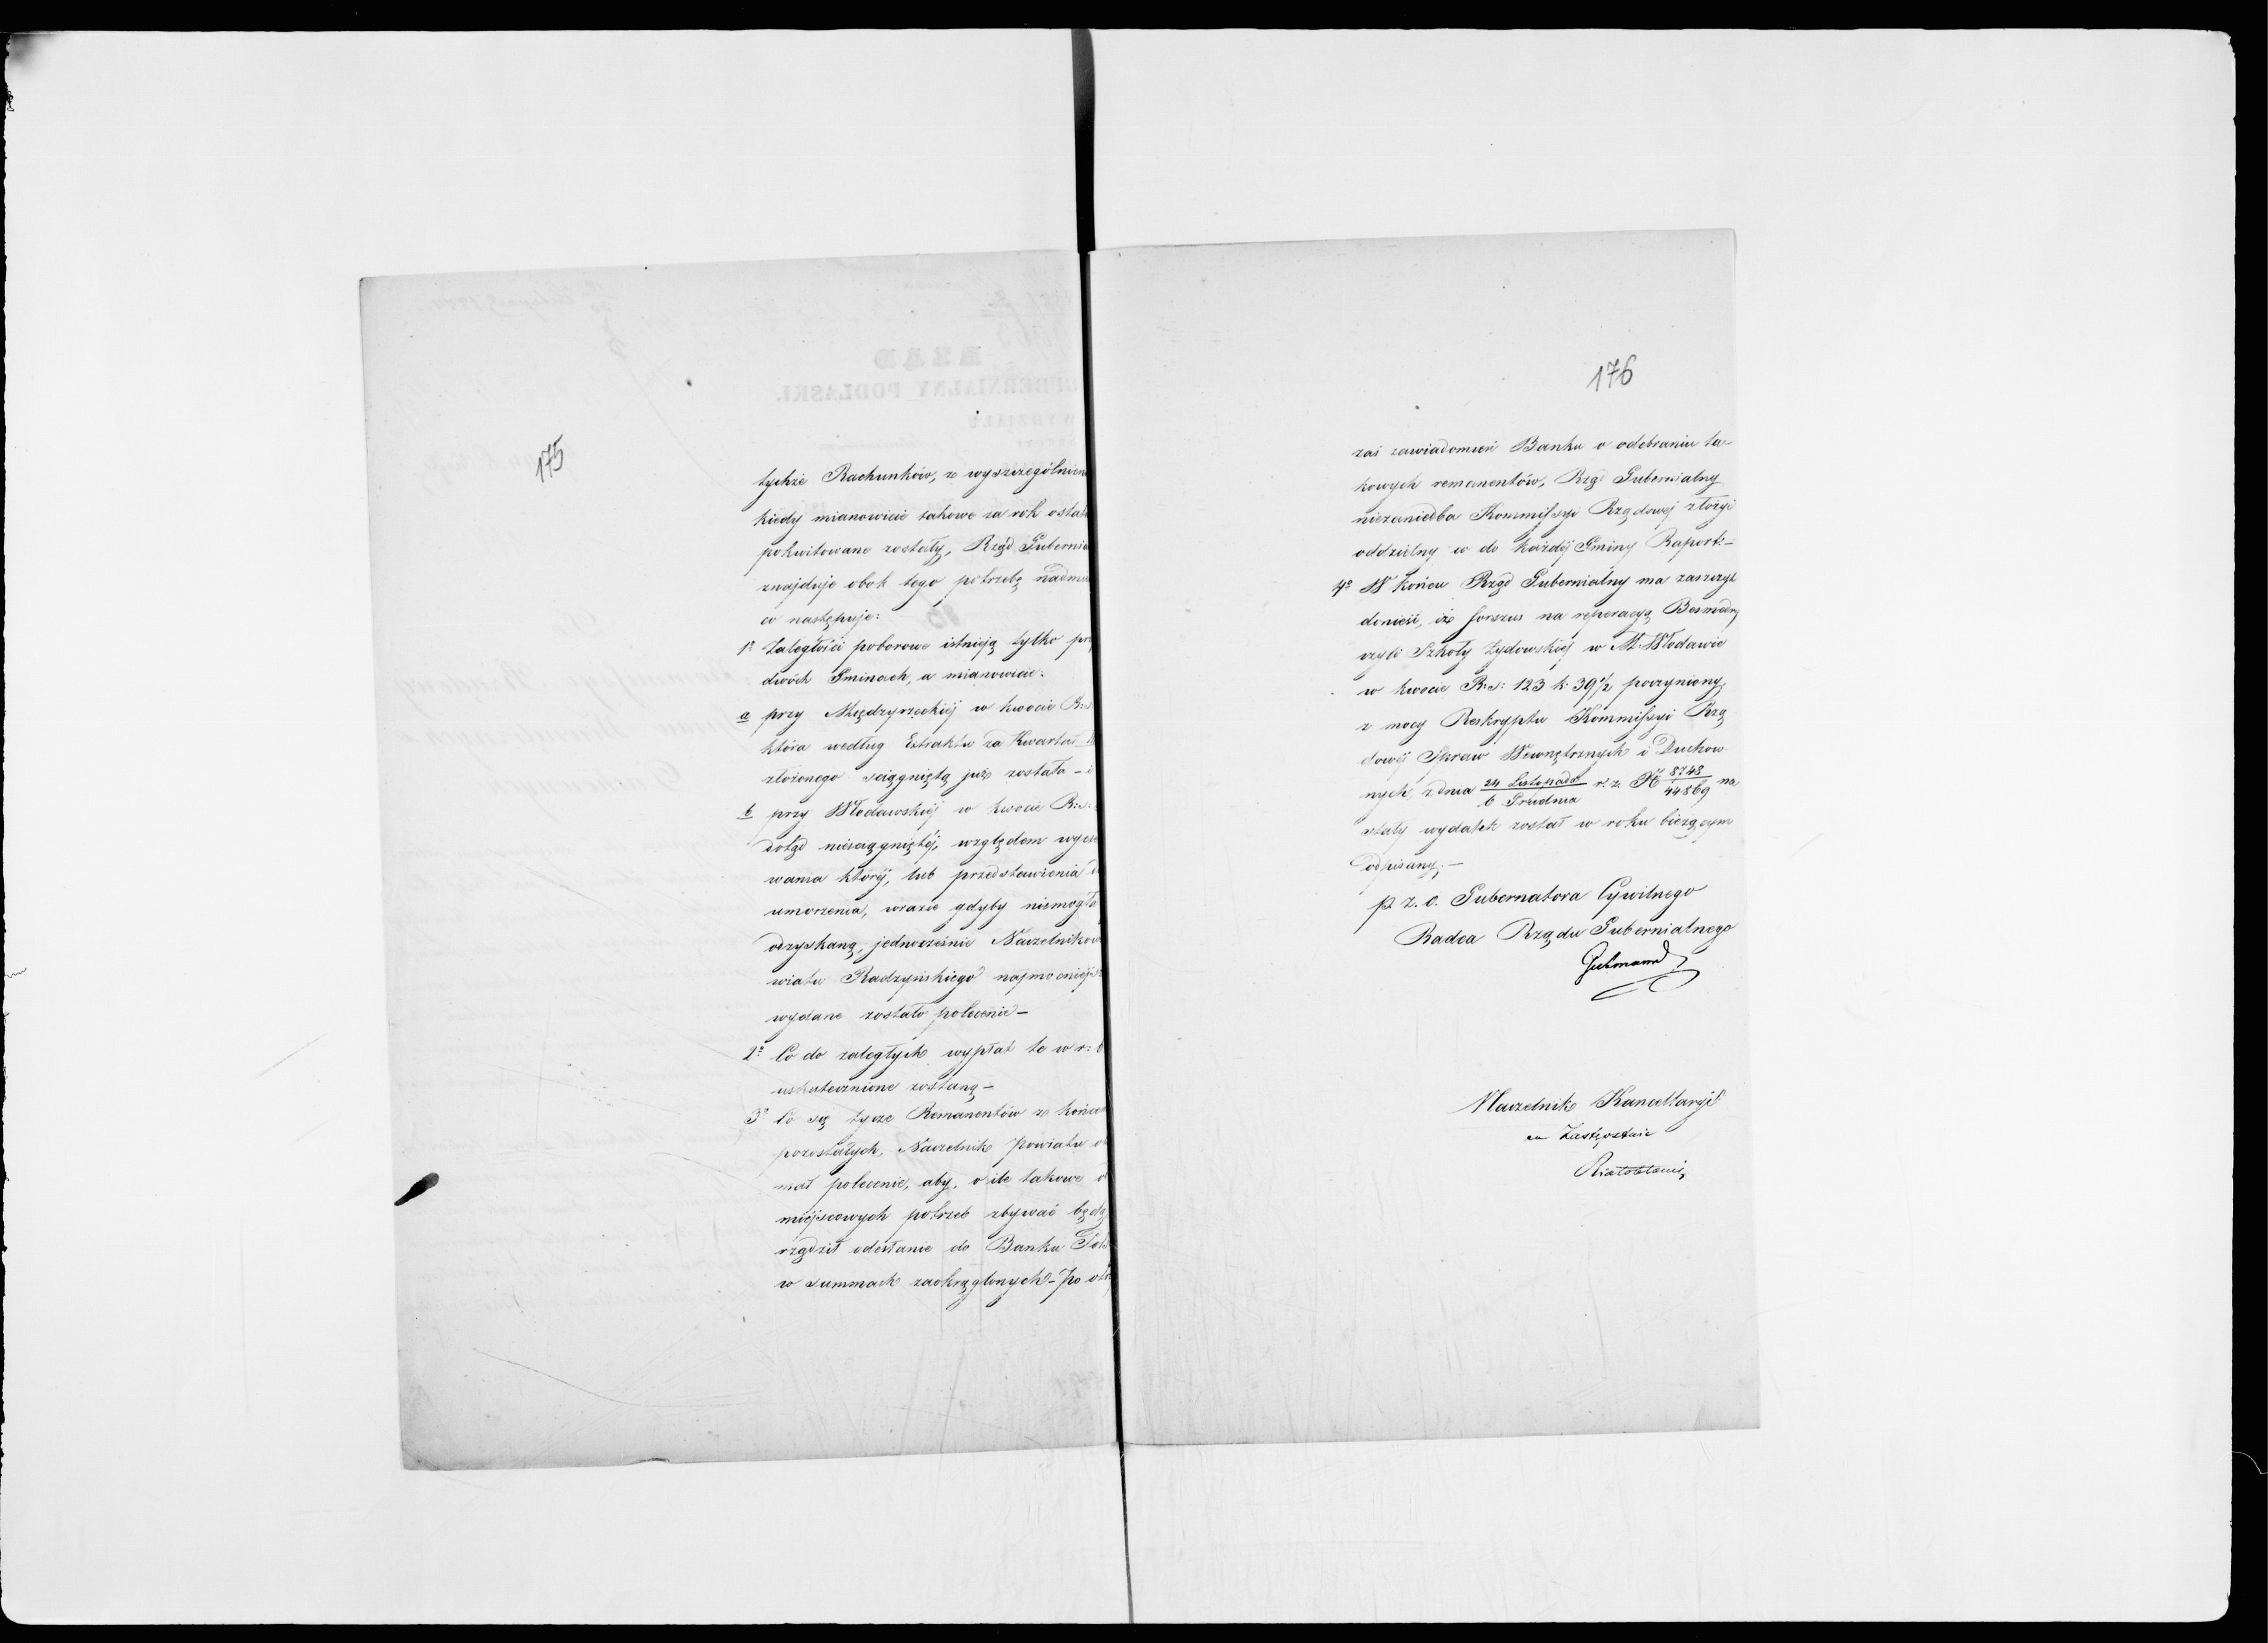 175
tychże Rachunków, z wyszczególnien
kiedy mianowicie takowe za rok ostat
pokwitowane zostały, Rząd Gubernia
znajduje obok tego potrzebę nadmi
co następuje:
1º Zaległości poborowe istnieją tylko prz
dwóch Gminach, a mianowicie:
a przy Międzyrzeckiéj w kwocie R:s:
która według Extraktu za Kwartał
złożonego ściągniętą już została – i
b przy Włodawskiéj w kwocie R:s:
dotąd nieściągniętéj, względem wyex
wania któréj, lub przedstawienia d
umorzenia, wrazie gdyby niemogła
odzyskaną, jednocześnie Naczelnikow
wiatu Radzyńskiego najmocniejsz
wydane zostało polecenie –
2º Co do zaległych wypłat te w r: b
uskutecznione zostaną –
3º Co się tycze Remanentów z końce
pozostałych, Naczelnik Powiatu ot
mał polecenie, aby, o ile takowe od
miéjscowych potrzeb zbywać będą
rządził odesłanie do Banku Pols
w summach zaokrąglonych – Po otr
176
zaś zawiadomień Banku o odebraniu ta-
kowych remanentów, Rząd Gubernialny
niezaniedba Kommissyi Rządowéj złożyć
oddzielny co do każdéj Gminy Raport. –
4º W końcu Rząd Gubernialny ma zaszczyt
donieść, iże forszus na reperacyą Besmedry
czyli Szkoły Żydowskiéj w M. Włodawie
w kwocie R:s: 123 k: 39½ poczyniony,
z mocy Reskryptu Kommissyi Rzą
dowéj Spraw Wewnętrznych i Duchow-
nych, z dnia 24 Listopada / 6 Grudnia r. z. № 8748/44869 na
stały wydatek został w roku bieżącym
odpisany. –
p. z. o. Gubernatora Cywilnego
Radca Rządu Gubernialnego
Naczelnik Kancellaryi